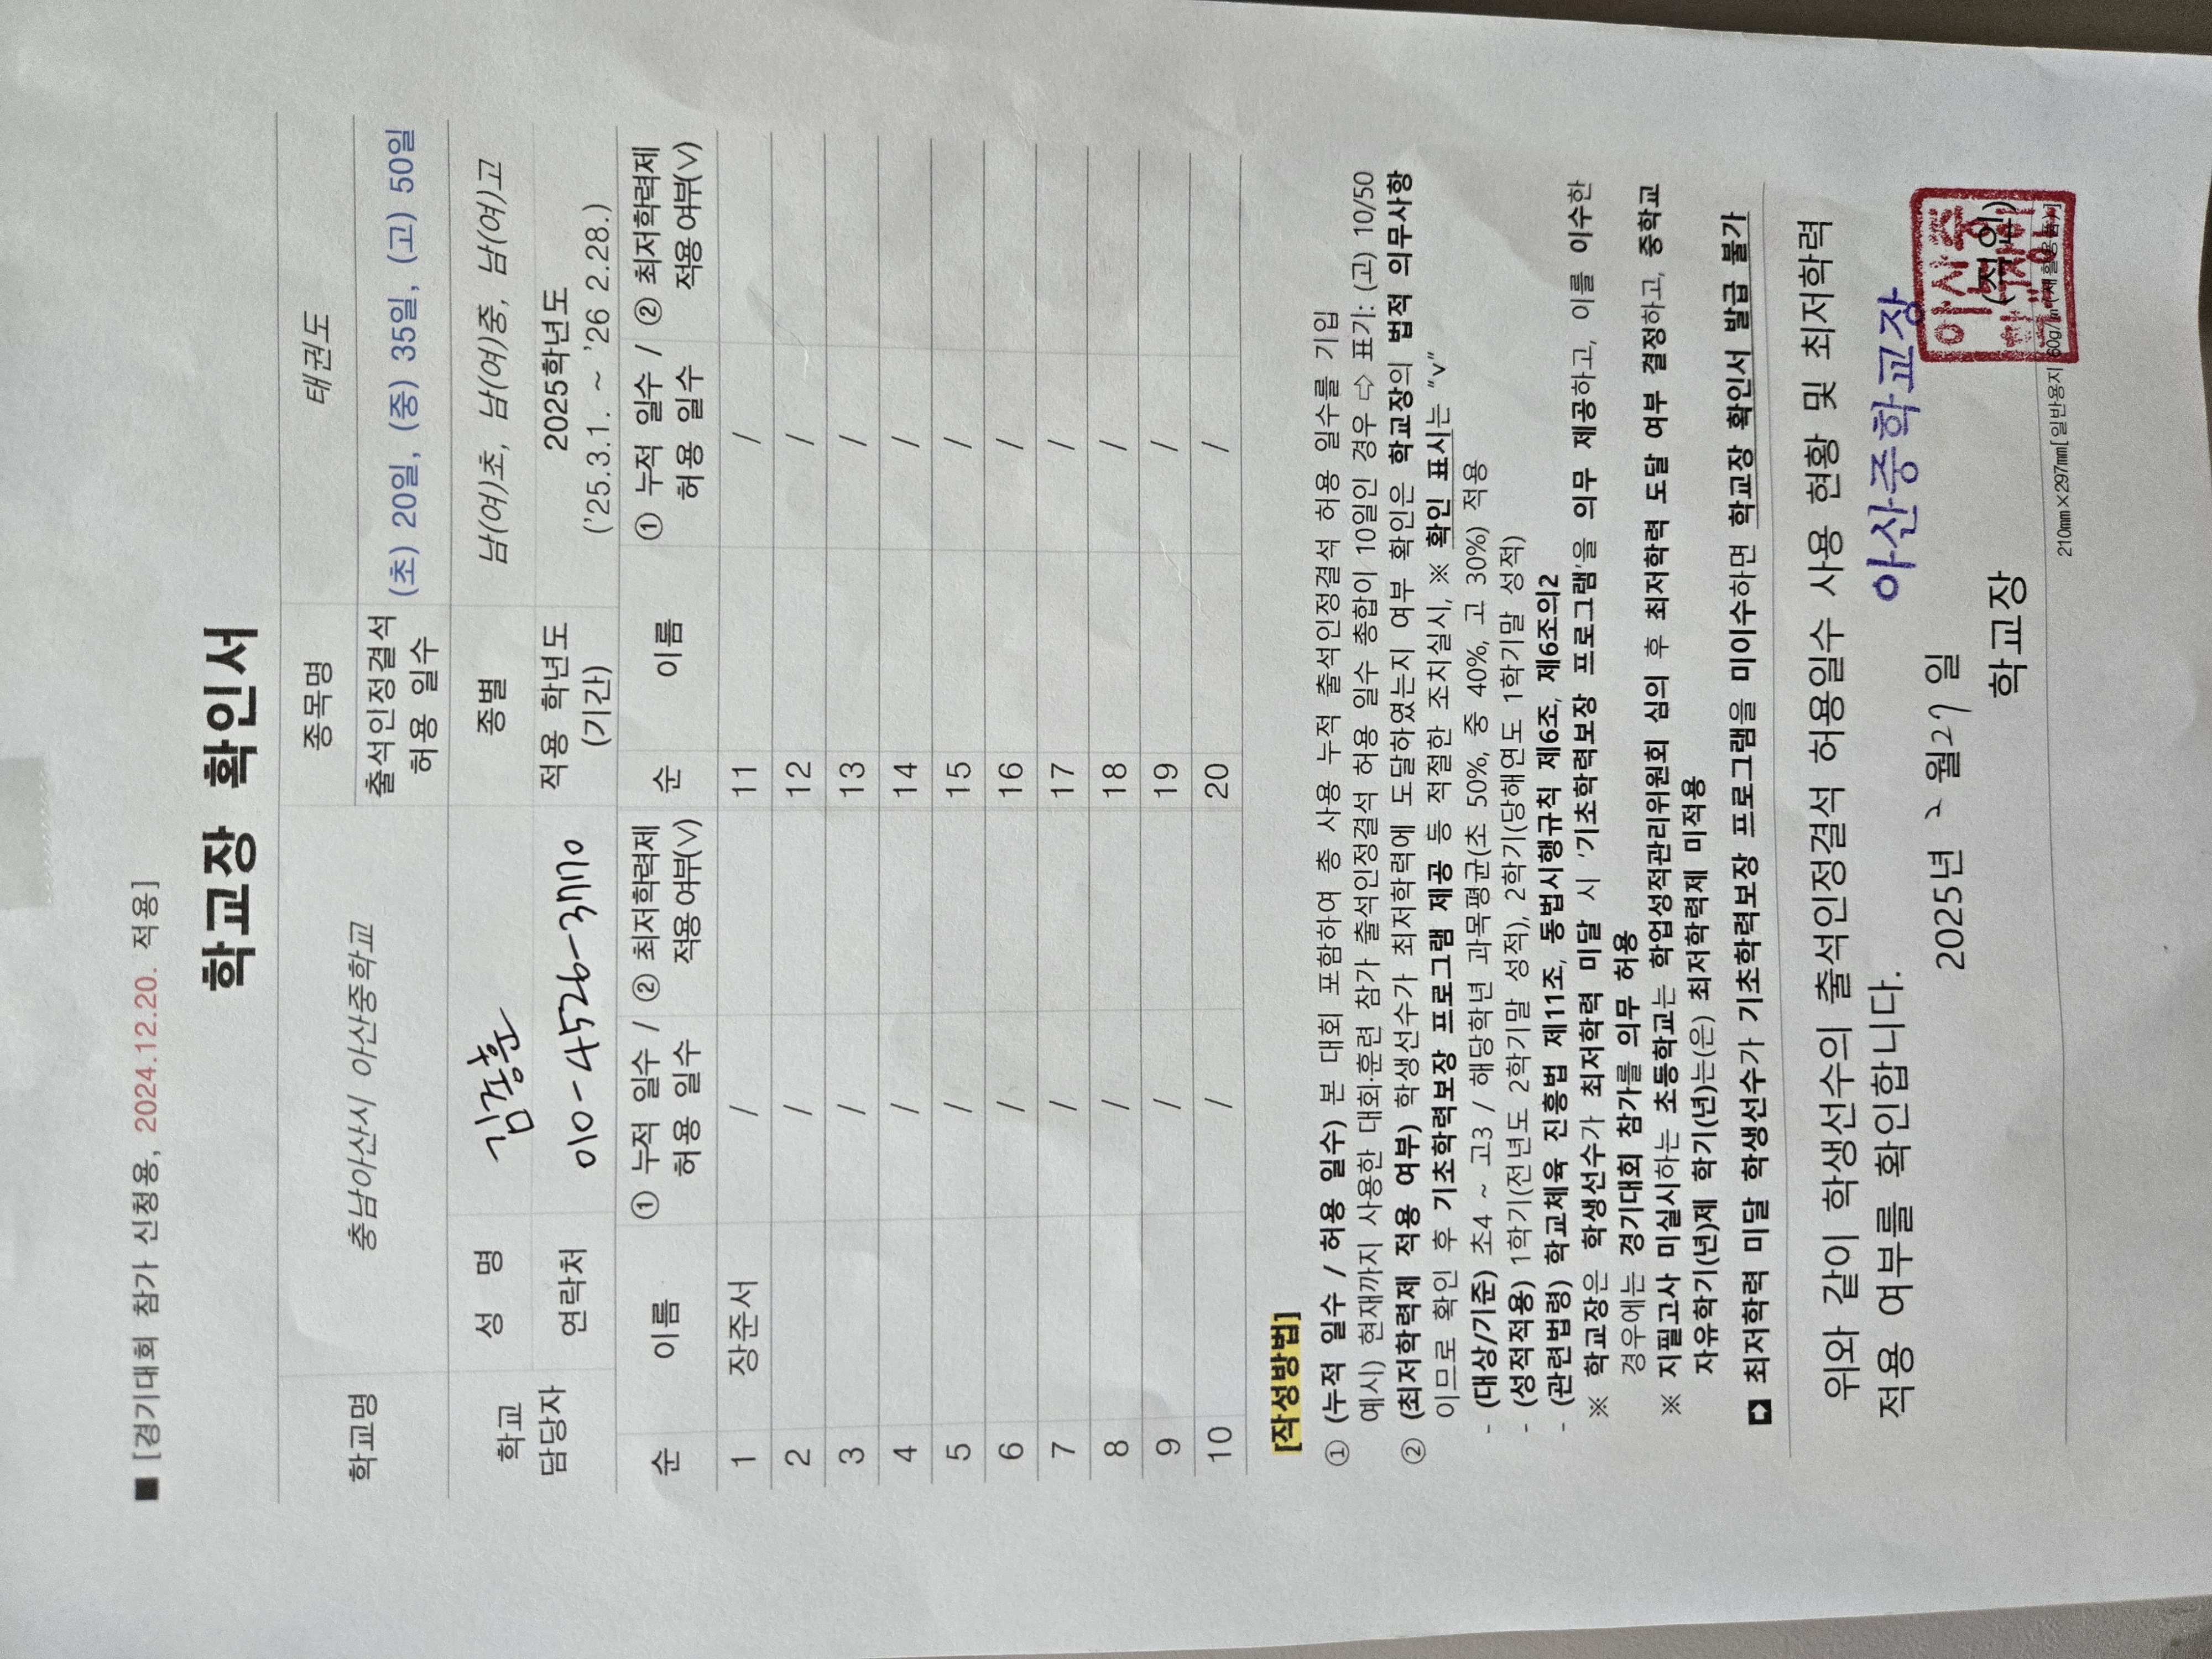 ■ [경기대회 참가 신청용, 2024.12.20. 적용]
학교장 확인서
학교명 충남아산시 아산중학교 종목명 태권도
출석인정결석 허용 일수 (초) 20일, (중) 35일, (고) 50일
학교 담당자 성 명 종별 남(여)초, 남(여)중, 남(여)고
연락처 010-4526-3770 적용 학년도 (기간) 2025학년도 ('25.3.1. ~ '26 2.28.)
순 이름 ① 누적 일수 / 허용 일수 ② 최저학력제 적용여부(V) 순 이름 ① 누적 일수 / 허용 일수 ② 최저학력제 적용여부(V)
1 장준서 / 11 /
2 / 12 /
3 / 13 /
4 / 14 /
5 / 15 /
6 / 16 /
7 / 17 /
8 / 18 /
9 / 19 /
10 / 20 /
[작성방법]
① (누적 일수 / 허용 일수) 본 대회 포함하여 총 사용 누적 출석인정결석 허용 일수를 기입
예시) 현재까지 사용한 대회·훈련 참가 출석인정결석 허용 일수 총합이 10일인 경우 ⇨ 표기: (고) 10/50
② (최저학력제 적용 여부) 학생선수가 최저학력에 도달하였는지 여부 확인은 학교장의 법적 의무사항
이므로 확인 후 기초학력보장 프로그램 제공 등 적절한 조치실시, ※ 확인 표시는 "v"
- (대상/기준) 초4 ~ 고3 / 해당학년 과목평균(초 50%, 중 40%, 고 30%) 적용
- (성적적용) 1학기(전년도 2학기말 성적), 2학기(당해연도 1학기말 성적)
- (관련법령) 학교체육 진흥법 제11조, 동법시행규칙 제6조, 제6조의2
※ 학교장은 학생선수가 최저학력 미달 시 '기초학력보장 프로그램'을 의무 제공하고, 이를 이수한
경우에는 경기대회 참가를 의무 허용
※ 지필고사 미실시하는 초등학교는 학업성적관리위원회 심의 후 최저학력 도달 여부 결정하고, 중학교
자유학기(년)제 학기(년)는(은) 최저학력제 미적용
➡ 최저학력 미달 학생선수가 기초학력보장 프로그램을 미이수하면 학교장 확인서 발급 불가
위와 같이 학생선수의 출석인정결석 허용일수 사용 현황 및 최저학력
적용 여부를 확인합니다.
아산중학교장
2025년 2 월 27 일
학교장 (직인)
210㎜×297㎜[일반용지 60g/㎡(재활용품)]